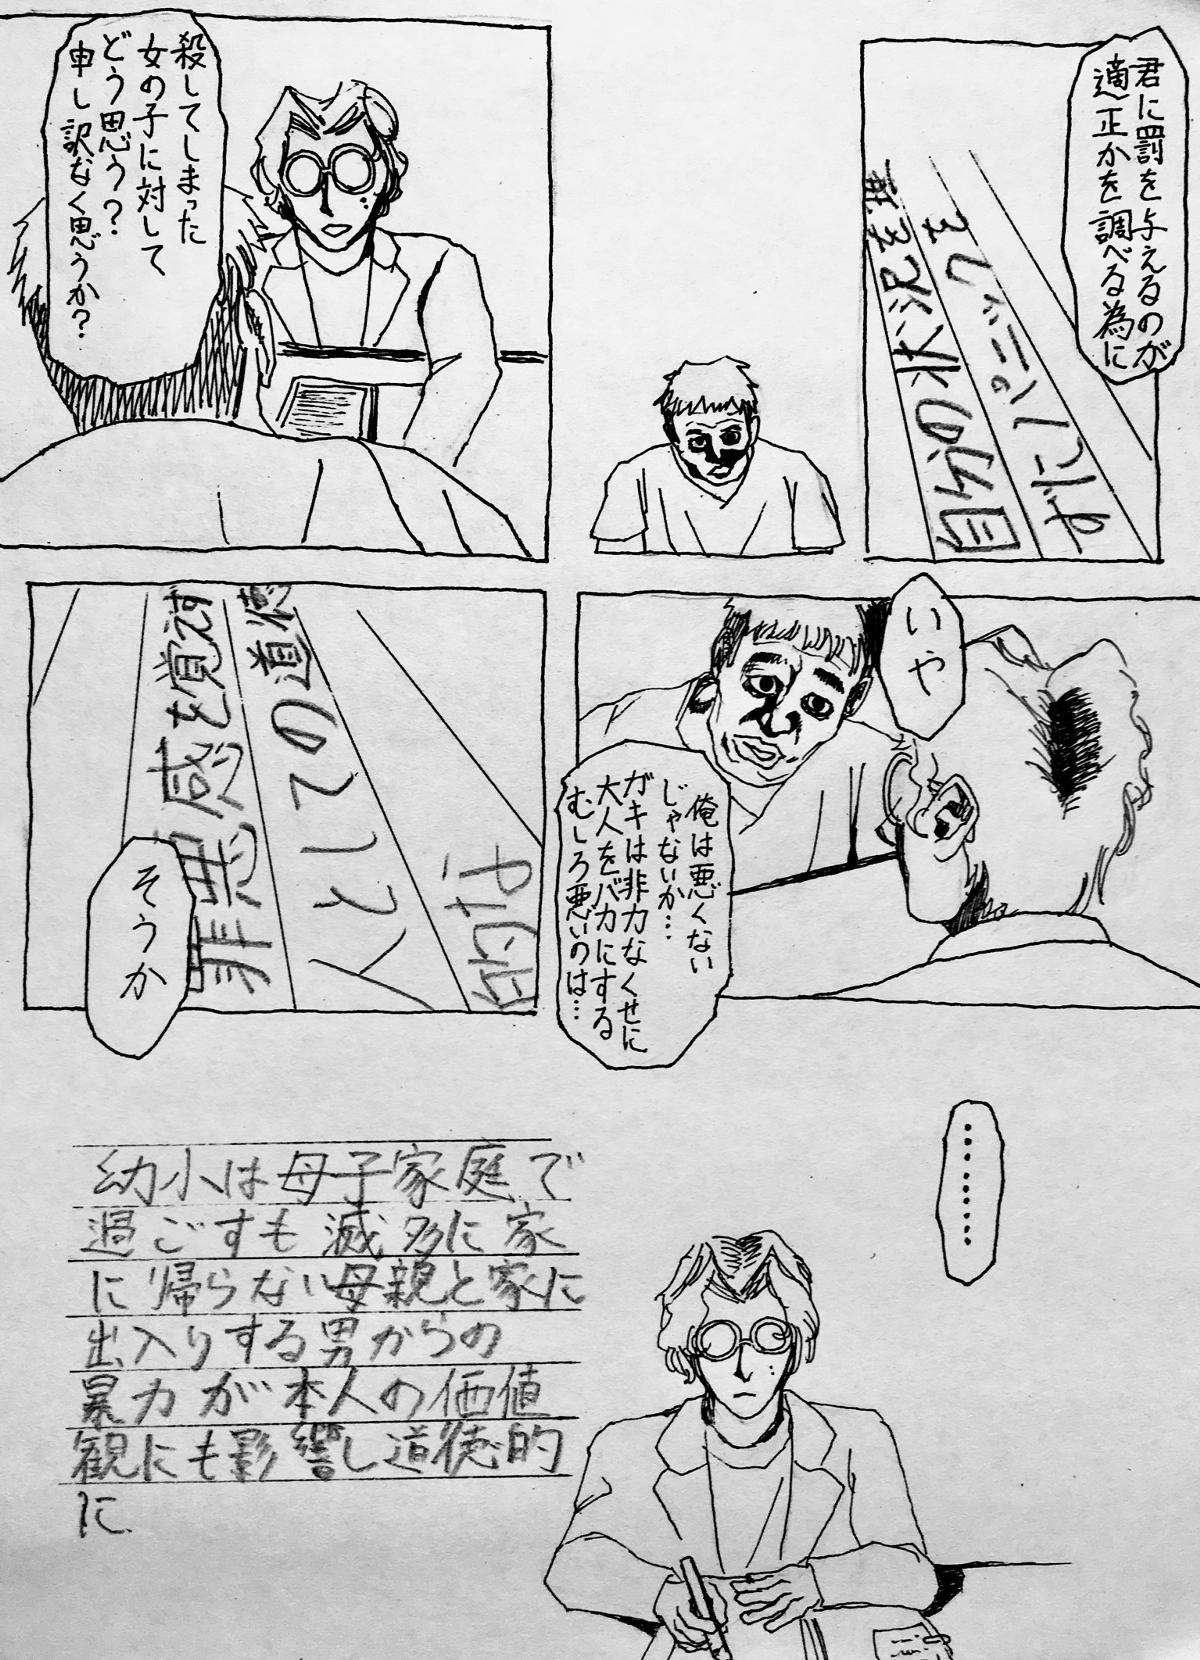 君に罰を与えるのが
適正かを調べる為に
殺してしまった
女の子に対して
どう思う？
申し訳なく思うか？
いや
俺は悪くない
じゃないか…
ガキは非力なくせに
大人をバカにする
むしろ悪いのは…
の道徳
罪悪感を覚えず
そうか
………
幼小は母子家庭で
過ごすも滅多に家
に帰らない母親と家に
出入りする男からの
暴力が本人の価値
観にも影響し道徳的
に